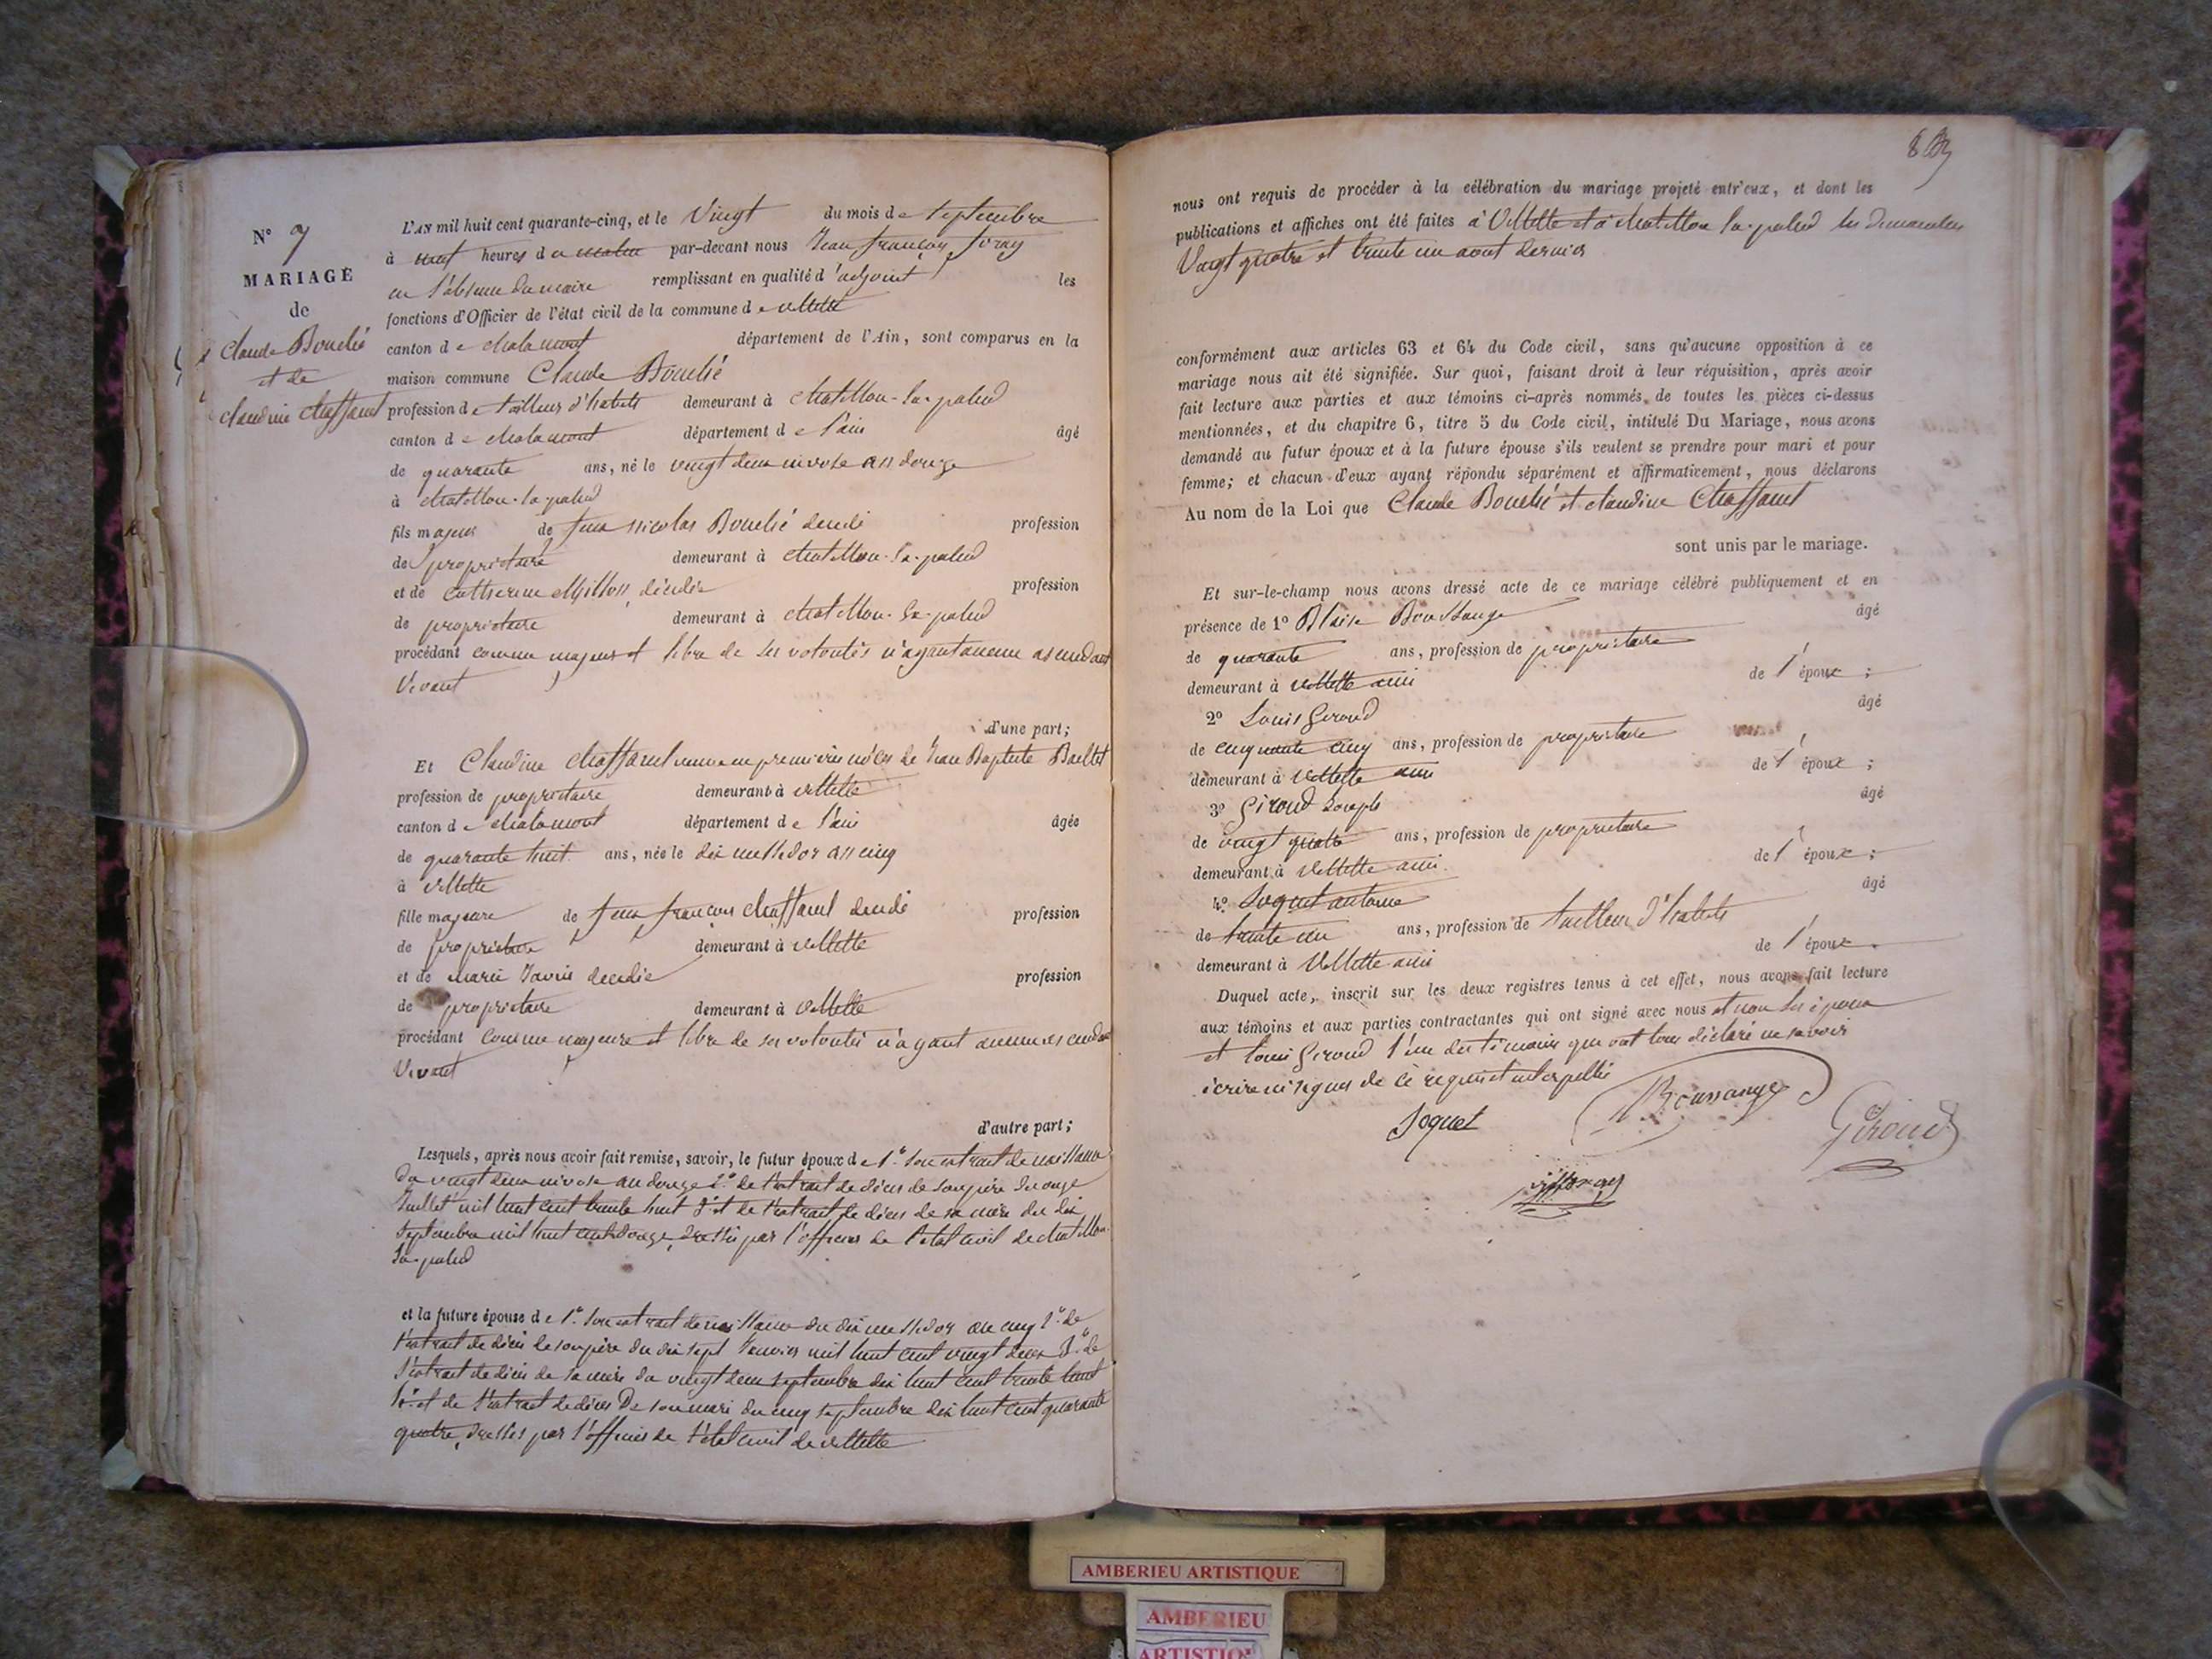 N° 7
MARIAGE
de
Claude Bouclié
et de
Claudine Chaffaud
L'AN mil huit cent quarante-cinq, et le Vingt du mois de septembre
à neuf heures du matin par-devant nous Jean françois foray
en l'absence du maire remplissant en qualité d'adjoint les
fonctions d'Officier de l'état civil de la commune de villette
canton de chalamont département de l'Ain, sont comparus en la
maison commune Claude Bouclié
profession de tailleur d'habits demeurant à chatillon-la-palud
canton de chalamont département de l'ain âgé
de quarante ans, né le vingt deux nivose an douze
à chatillon-la-palud
fils majeur de feux nicolas Bouclié décédé profession
de propriétaire demeurant à chatillon-la-palud
et de Catherine Millon, décédée profession
de propriétaire demeurant à chatillon-la-palud
procédant comme majeur et libre de ses volontés n'ayant aucun ascendant
Vivant
d'une part;
Et Claudine chaffaud veuve en premieres nôces de Jean Baptiste
profession de propriétaire demeurant à villette
canton de chalamont département de l'ain âgée
de quarante huit ans, née le dix messidor an cinq
à villette
fille majeure de feux françois chaffaud décédé profession
de propriétaire demeurant à villette
et de marie décédée profession
de propriétaire demeurant à villette
procédant comme majeure et libre de ses volontés n'ayant aucun ascendant
Vivant
d'autre part;
Lesquels, après nous avoir fait remise, savoir, le futur époux de 1° son extrait de naissance
du vingt deux nivose an douze 2° de l'extrait de décès de son père du onze
Juillet mil huit cent trente huit 3° et de l'extrait de décès de sa mère du dix
septembre mil huit cent douze, dressés par l'officier de l'état civil de chatillon-
la-palud
et la future épouse de 1° son extrait de naissance du dix messidor an cinq 2° de
l'extrait de décès de son père du dix sept Janvier mil huit cent vingt deux 3° de
l'extrait de décès de sa mère du vingt deux septembre dix huit cent trente huit
4° et de l'extrait de décès De son mari du cinq septembre dix huit cent quarante
quatre, dressés par l'officier de l'état civil de villette
nous ont requis de procéder à la célébration du mariage projeté entr'eux, et dont les
publications et affiches ont été faites à Villette et à chatillon la-palud les dimanches
Vingt quatre et trente un aout dernier
conformément aux articles 63 et 64 du Code civil, sans qu'aucune opposition à ce
mariage nous ait été signifiée. Sur quoi, faisant droit à leur réquisition, après avoir
fait lecture aux parties et aux témoins ci-après nommés, de toutes les pièces ci-dessus
mentionnées, et du chapitre 6, titre 5 du Code civil, intitulé Du Mariage, nous avons
demandé au futur époux et à la future épouse s'ils veulent se prendre pour mari et pour
femme; et chacun d'eux ayant répondu séparément et affirmativement, nous déclarons
Au nom de la Loi que Claude Bouclié et claudine Chaffaud
sont unis par le mariage.
Et sur-le-champ nous avons dressé acte de ce mariage célébré publiquement et en
présence de 1° Blaise Boussange âgé
de quarante ans, profession de propriétaire
demeurant à villette ami de l'époux ;
2° Louis Giroud âgé
de cinquante cinq ans, profession de propriétaire
demeurant à villette ami de l'époux ;
3° Giroud Joseph âgé
de vingt quatre ans, profession de propriétaire
demeurant à villette ami de l'époux ;
4° Soquet antoine âgé
de trente un ans, profession de tailleur d'habits
demeurant à Villette ami de l'époux.
Duquel acte, inscrit sur les deux registres tenus à cet effet, nous avons fait lecture
aux témoins et aux parties contractantes qui ont signé avec nous et non les époux
et louis Giroud l'un des témoins qui ont tous déclaré ne savoir
écrire ni signer de ce requis et interpellés
Soquet
Boussange
Giroud
AMBERIEU ARTISTIQUE
AMBERIEU